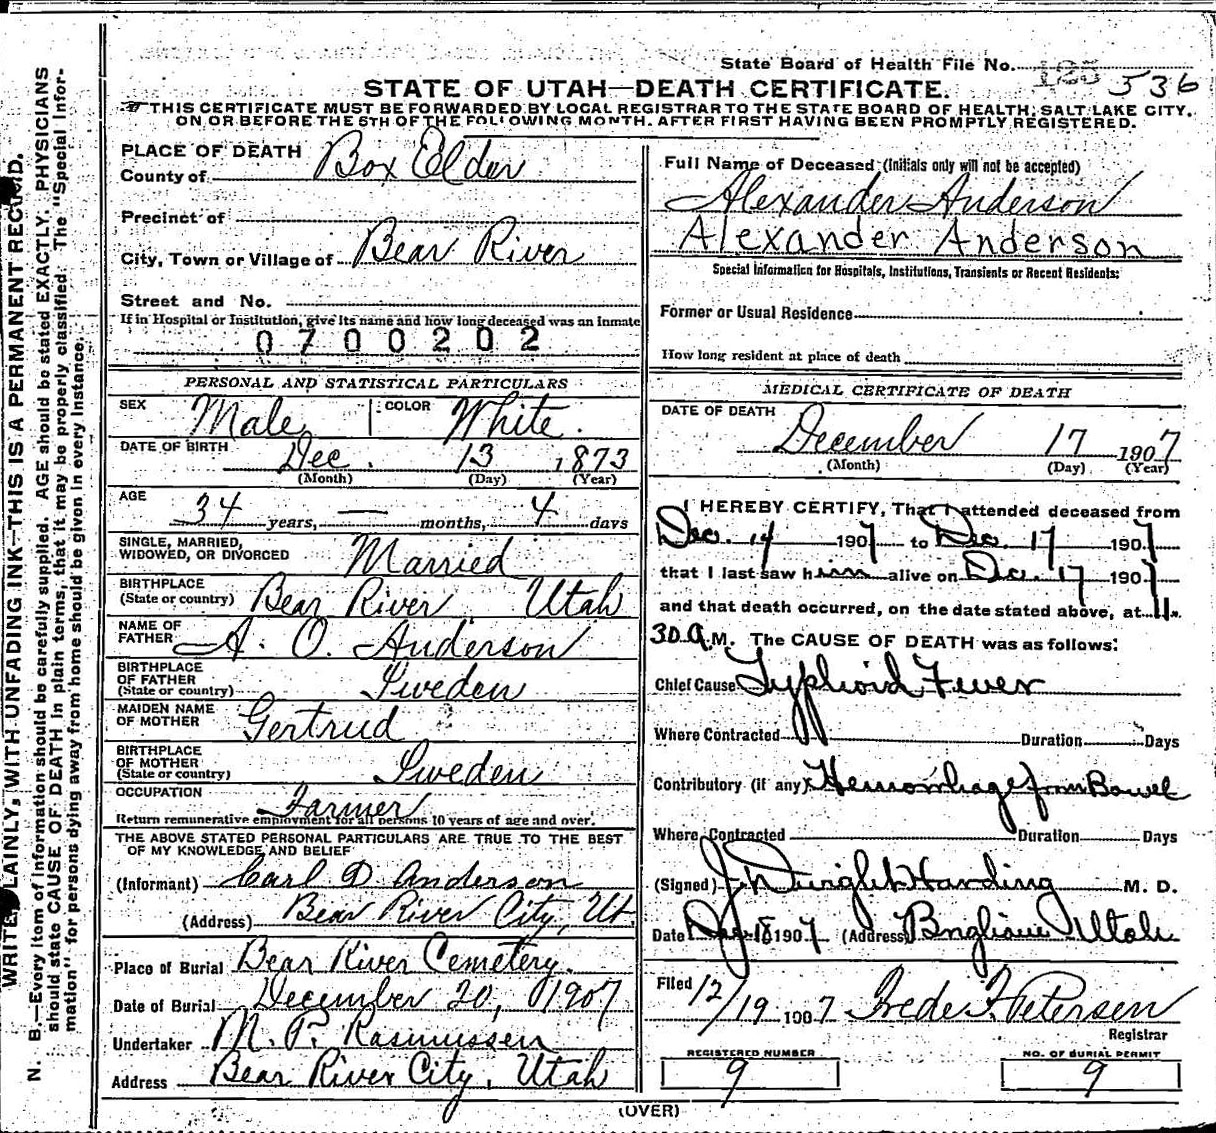 State Board of Health File No. 125 536
STATE OF UTAH—DEATH CERTIFICATE.
THIS CERTIFICATE MUST BE FORWARDED BY LOCAL REGISTRAR TO THE STATE BOARD OF HEALTH, SALT LAKE CITY,
ON OR BEFORE THE 5TH OF THE FOLLOWING MONTH. AFTER FIRST HAVING BEEN PROMPTLY REGISTERED.
WRITE PLAINLY, WITH UNFADING INK—THIS IS A PERMANENT RECORD.
N. B.—Every item of information should be carefully supplied. AGE should be stated EXACTLY. PHYSICIANS
should state CAUSE OF DEATH in plain terms, that it may be properly classified. The "Special Infor-
mation" for persons dying away from home should be given in every instance.
PLACE OF DEATH
County of Box Elder
Precinct of
City, Town or Village of Bear River
Street and No.
If in Hospital or Institution, give its name and how long deceased was an inmate
0700202
PERSONAL AND STATISTICAL PARTICULARS
SEX Male COLOR White.
DATE OF BIRTH Dec. 13 1873
(Month) (Day) (Year)
AGE 34 years, — months, 4 days
SINGLE, MARRIED,
WIDOWED, OR DIVORCED Married
BIRTHPLACE
(State or country) Bear River Utah
NAME OF
FATHER A. O. Anderson
BIRTHPLACE
OF FATHER
(State or country) Sweden
MAIDEN NAME
OF MOTHER Gertrud
BIRTHPLACE
OF MOTHER
(State or country) Sweden
OCCUPATION Farmer
Return remunerative employment for all persons 10 years of age and over.
THE ABOVE STATED PERSONAL PARTICULARS ARE TRUE TO THE BEST
OF MY KNOWLEDGE AND BELIEF
(Informant) Carl D. Anderson
(Address) Bear River City, Ut
Place of Burial Bear River Cemetery.
Date of Burial December 20, 1907
Undertaker M. P. Rasmussen
Address Bear River City, Utah
Full Name of Deceased (Initials only will not be accepted)
Alexander Anderson
Alexander Anderson
Special Information for Hospitals, Institutions, Transients or Recent Residents:
Former or Usual Residence
How long resident at place of death
MEDICAL CERTIFICATE OF DEATH
DATE OF DEATH December 17 1907
(Month) (Day) (Year)
I HEREBY CERTIFY, That I attended deceased from
Dec. 14 1907 to Dec. 17 1907
that I last saw him alive on Dec. 17 1907
and that death occurred, on the date stated above, at 11.
30 A.M. The CAUSE OF DEATH was as follows:
Chief Cause Typhoid Fever
Where Contracted Duration Days
Contributory (if any) Hemorrhage from Bowel
Where Contracted Duration Days
(Signed) J Dwight Harding M. D.
Date Dec 18 1907 (Address) Utah
Filed 12/19 1907 Petersen
Registrar
REGISTERED NUMBER
9
NO. OF BURIAL PERMIT
9
(OVER)